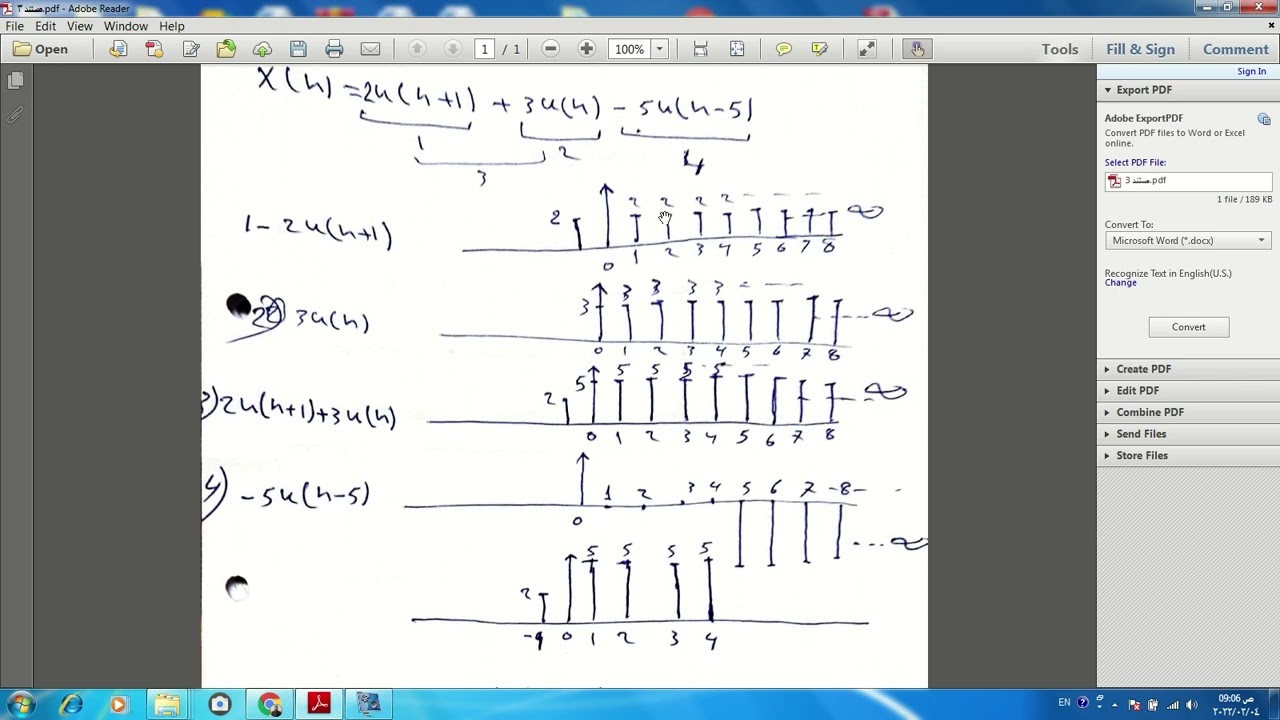 مستند 3.pdf - Adobe Reader
File Edit View Window Help
Open 1 / 1 100% Tools Fill & Sign Comment
Sign In
Export PDF
Adobe ExportPDF
Convert PDF files to Word or Excel online.
Select PDF File:
مستند 3.pdf
1 file / 189 KB
Convert To:
Microsoft Word (*.docx)
Recognize Text in English(U.S.)
Change
Convert
Create PDF
Edit PDF
Combine PDF
Send Files
Store Files
X(n) = 2u(n+1) + 3u(n) - 5u(n-5)
1 2 4
3
1- 2u(n+1)
2 2 2 2 2 - - - ∞
0 1 2 3 4 5 6 7 8
2) 3u(n)
3 3 3 3 3 - - - ... ∞
0 1 2 3 4 5 6 7 8
3) 2u(n+1)+3u(n)
2 5 5 5 5 5 - - - ∞
0 1 2 3 4 5 6 7 8
4) -5u(n-5)
0 1 2 3 4 5 6 7 -8- -
... ∞
2 5 5 5 5
-1 0 1 2 3 4
EN
09:06 ص
٢٠٢٢/٠٢/٠٤